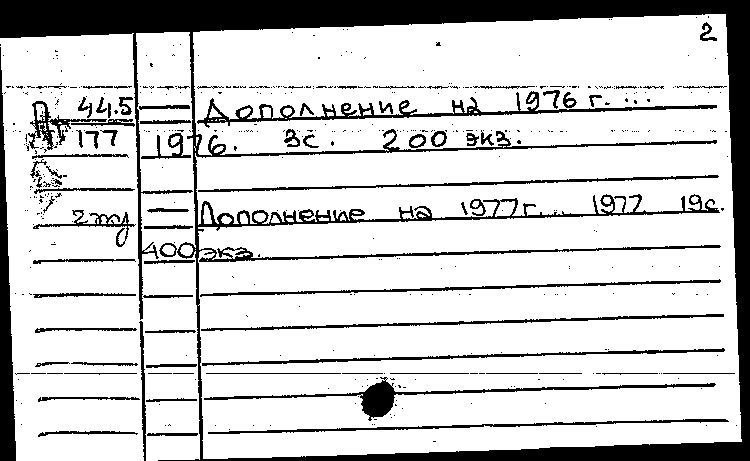 2
44.5 — Дополнение на 1976 г. ...
177 1976. 3с. 200 экз.
— Дополнение на 1977г... 1977 19с.
400 экз.